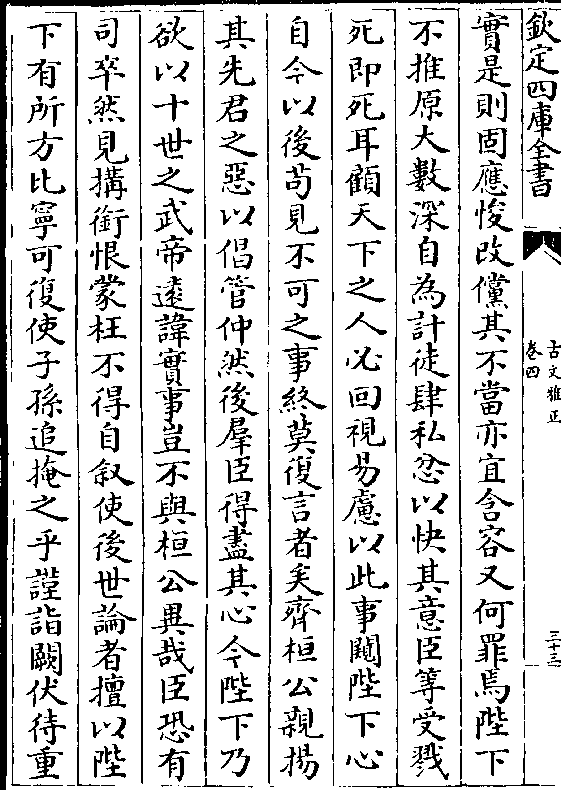 欽定四庫全書
古文雅正
卷四
三十三
實是則固應悛改儻其不當亦宜含容又何罪焉陛下
不推原大數深自為計徒肆私忿以快其意臣等受戮
死即死耳顧天下之人必回視易慮以此事闚陛下心
自今以後茍見不可之事終莫復言者矣齊桓公親揚
其先君之惡以倡管仲然後羣臣得盡其心今陛下乃
欲以十世之武帝遠諱實事豈不與桓公異哉臣恐有
司卒然見搆銜恨蒙枉不得自叙使後世論者擅以陛
下有所方比寧可復使子孫追掩之乎謹詣闕伏待重